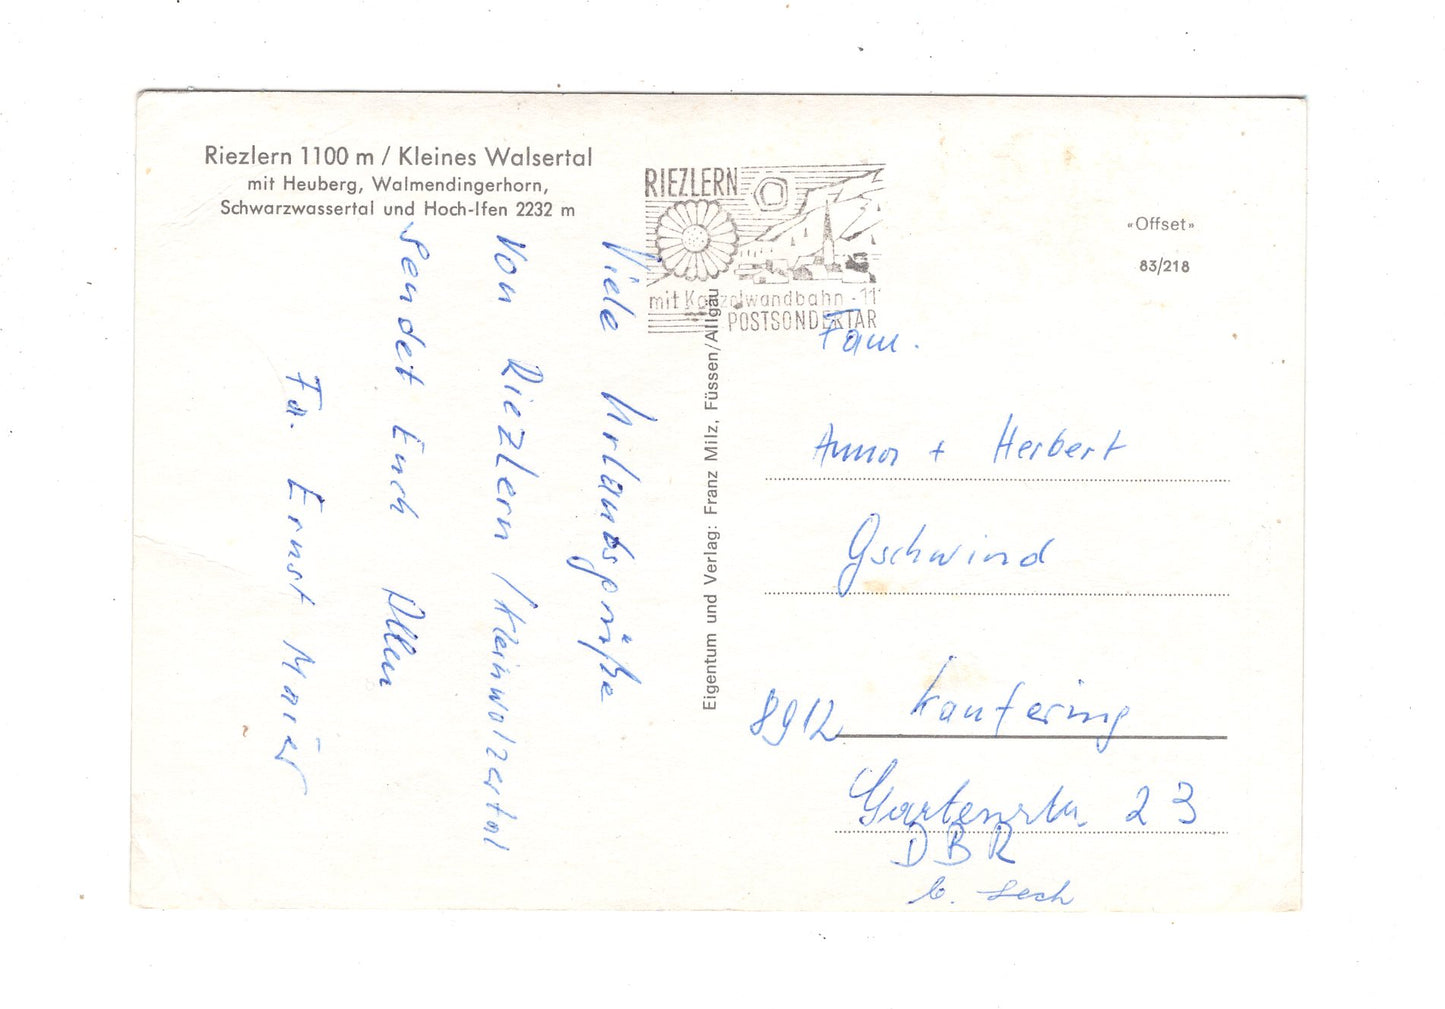 Riezlern 1100 m / Kleines Walsertal
mit Heuberg, Walmendingerhorn,
Schwarzwassertal und Hoch-Ifen 2232 m
RIEZLERN
mit Kanzelwandbahn · 11
POSTSONDERTAR
«Offset»
83/218
Viele Urlaubsgrüße
von Riezlern / Kleinwalzertal
sendet Euch Allen
Fa. Ernst Maier
Eigentum und Verlag: Franz Milz, Füssen/Allgäu
Fam.
Anna + Herbert
Gschwind
8912 Kaufering
Gartenstr. 23
DBR
b. Lech